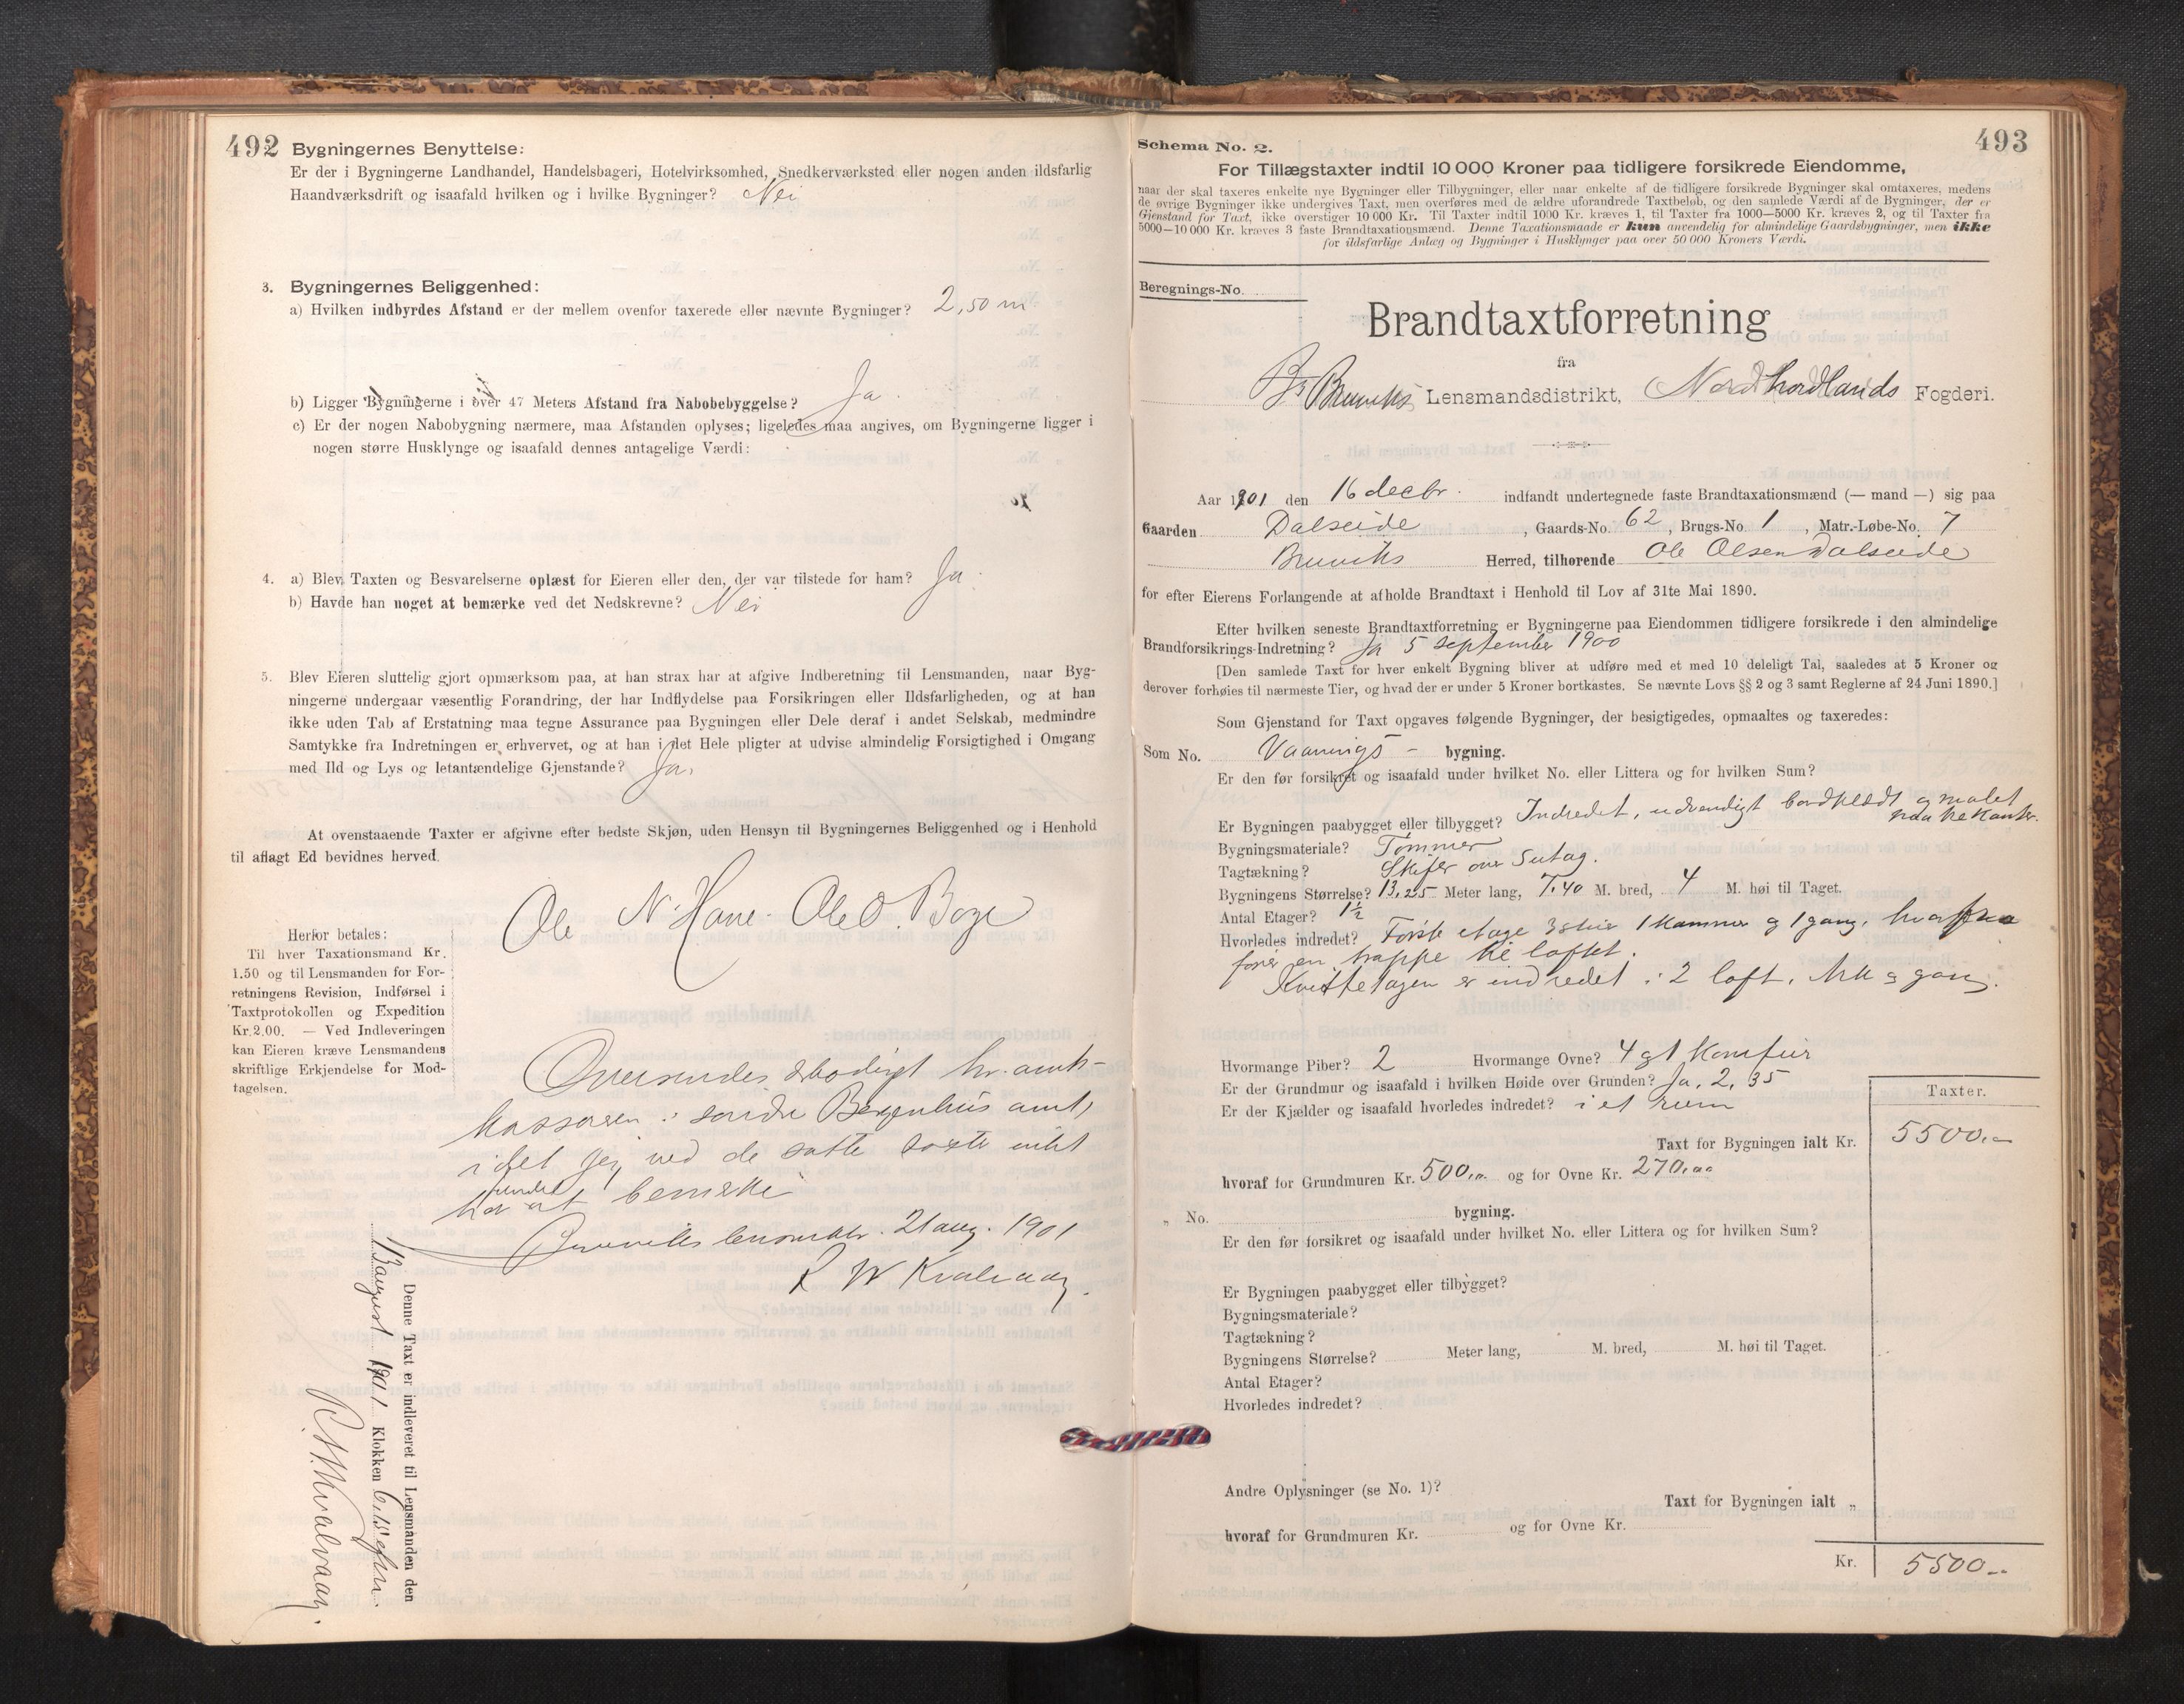 492
Bygningernes Benyttelse:
Er der i Bygningerne Landhandel, Handelsbageri, Hotelvirksomhed, Snedkerværksted eller nogen anden ildsfarlig
Haandværksdrift og isaafald hvilken og i hvilke Bygninger? Nei
3. Bygningernes Beliggenhed:
a) Hvilken indbyrdes Afstand er der mellem ovenfor taxerede eller nævnte Bygninger? 2,50 m
b) Ligger Bygningerne i over 47 Meters Afstand fra Nabobebyggelse? Ja
c) Er der nogen Nabobygning nærmere, maa Afstanden oplyses; ligeledes maa angives, om Bygningerne ligger i
nogen større Husklynge og isaafald dennes antagelige Værdi:
4. a) Blev Taxten og Besvarelserne oplæst for Eieren eller den, der var tilstede for ham? Ja.
b) Havde han noget at bemærke ved det Nedskrevne? Nei
5. Blev Eieren sluttelig gjort opmærksom paa, at han strax har at afgive Indberetning til Lensmanden, naar Byg-
ningerne undergaar væsentlig Forandring, der har Indflydelse paa Forsikringen eller Ildsfarligheden, og at han
ikke uden Tab af Erstatning maa tegne Assurance paa Bygningen eller Dele deraf i andet Selskab, medmindre
Samtykke fra Indretningen er erhvervet, og at han i det Hele pligter at udvise almindelig Forsigtighed i Omgang
med Ild og Lys og letantændelige Gjenstande? Ja.
At ovenstaaende Taxter er afgivne efter bedste Skjøn, uden Hensyn til Bygningernes Beliggenhed og i Henhold
til aflagt Ed bevidnes herved.
Ole N. Hane. Ole O. Boge
Herfor betales:
Til hver Taxationsmand Kr.
1.50 og til Lensmanden for For-
retningens Revision, Indførsel i
Taxtprotokollen og Expedition
Kr. 2.00. — Ved Indleveringen
kan Eieren kræve Lensmandens
skriftlige Erkjendelse for Mod-
tagelsen.
Oversendes ærbødigst hr. amt-
kassereren i søndre Bergenhus amt,
idet jeg ved de satte taxter intet
har fundet at bemerke
Bruviks lensmdbr. 21 aug. 1901
R W Kvalvaag.
Denne Taxt er indleveret til Lensmanden den
august 1901 Klokken 6.15 eftm.
R. W. Kvalvaag.
493
Schema No. 2.
For Tillægstaxter indtil 10 000 Kroner paa tidligere forsikrede Eiendomme,
naar der skal taxeres enkelte nye Bygninger eller Tilbygninger, eller naar enkelte af de tidligere forsikrede Bygninger skal omtaxeres, medens
de øvrige Bygninger ikke undergives Taxt, men overføres med de ældre uforandrede Taxtbeløb, og den samlede Værdi af de Bygninger, der er
Gjenstand for Taxt, ikke overstiger 10 000 Kr. Til Taxter indtil 1000 Kr. kræves 1, til Taxter fra 1000—5000 Kr. kræves 2, og til Taxter fra
5000—10 000 Kr. kræves 3 faste Brandtaxationsmænd. Denne Taxationsmaade er kun anvendelig for almindelige Gaardsbygninger, men ikke
for ildsfarlige Anlæg og Bygninger i Husklynger paa over 50 000 Kroners Værdi.
Beregnings-No.
Brandtaxtforretning
fra
Bruviks Lensmandsdistrikt, Nordhordlands Fogderi.
Aar 1901 den 16 decbr. indfandt undertegnede faste Brandtaxationsmænd (— mand —) sig paa
Gaarden Dalseide, Gaards-No. 62, Brugs-No. 1, Matr.-Løbe-No. 7
Bruviks Herred, tilhørende Ole Olsen Dalseide
for efter Eierens Forlangende at afholde Brandtaxt i Henhold til Lov af 31te Mai 1890.
Efter hvilken seneste Brandtaxtforretning er Bygningerne paa Eiendommen tidligere forsikrede i den almindelige
Brandforsikrings-Indretning? Ja 5 september 1900
[Den samlede Taxt for hver enkelt Bygning bliver at udføre med et med 10 deleligt Tal, saaledes at 5 Kroner og
derover forhøies til nærmeste Tier, og hvad der er under 5 Kroner bortkastes. Se nævnte Lovs §§ 2 og 3 samt Reglerne af 24 Juni 1890.]
Som Gjenstand for Taxt opgaves følgende Bygninger, der besigtigedes, opmaaltes og taxeredes:
Som No. Vaanings- bygning.
Er den før forsikret og isaafald under hvilket No. eller Littera og for hvilken Sum?
Er Bygningen paabygget eller tilbygget? Indredet, udvendigt bordklædt og malet
paa tre Kanter.
Bygningsmateriale? Tømmer
Tagtækning? Skifer over Sutag.
Bygningens Størrelse? 13,25 Meter lang, 7,40 M. bred, 4 M. høi til Taget.
Antal Etager? 1½
Hvorledes indredet? Første etage 3 stuer 1 kammer og 1 gang, hvorfra
fører en trappe til loftet.
Kvistetagen er indredet i 2 loft, trk og gang.
Hvormange Piber? 2 Hvormange Ovne? 4 og 1 Komfur
Er der Grundmur og isaafald i hvilken Høide over Grunden? Ja, 2,35
Er der Kjælder og isaafald hvorledes indredet? i et rum
Taxter.
Taxt for Bygningen ialt Kr. 5500,—
hvoraf for Grundmuren Kr. 500,00 og for Ovne Kr. 270,00
„ No. bygning.
Er den før forsikret og isaafald under hvilket No. eller Littera og for hvilken Sum?
Er Bygningen paabygget eller tilbygget?
Bygningsmateriale?
Tagtækning?
Bygningens Størrelse? Meter lang, M. bred, M. høi til Taget.
Antal Etager?
Hvorledes indredet?
Andre Oplysninger (se No. 1)?
Taxt for Bygningen ialt „
hvoraf for Grundmuren Kr. og for Ovne Kr.
Kr. 5500—